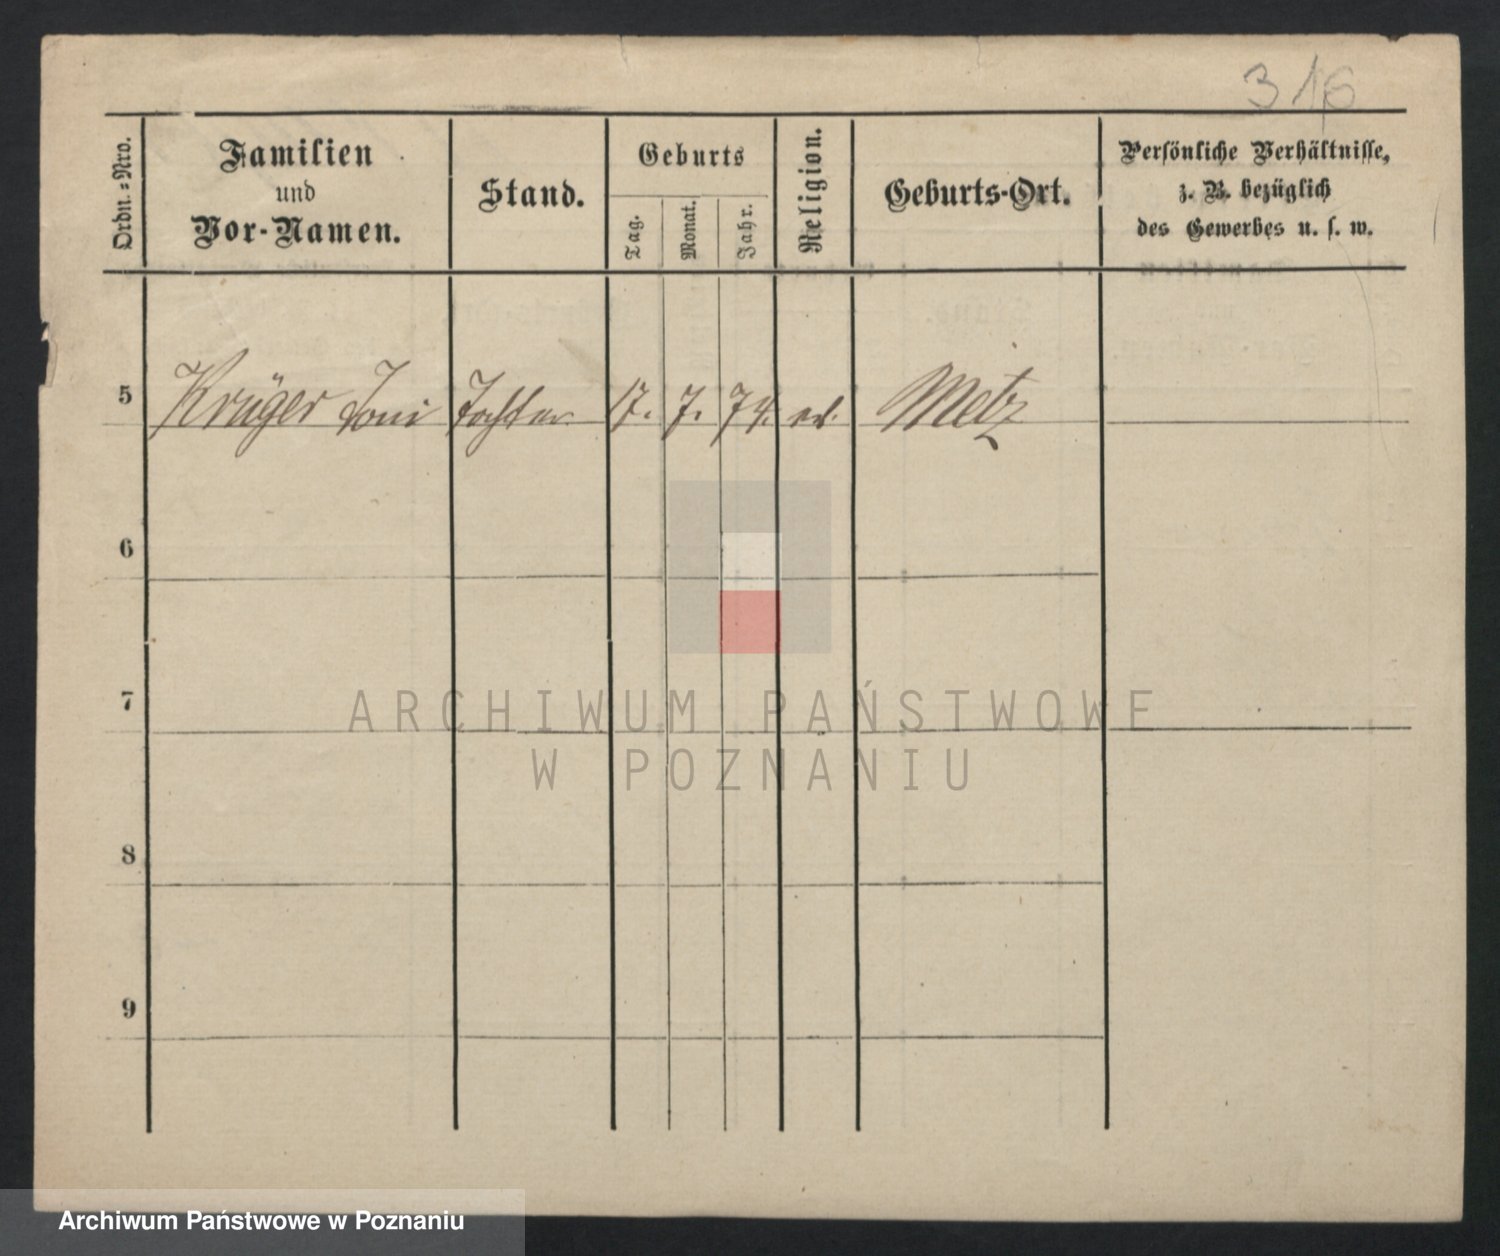 316
Ordn.=Nro.
Familien
und
Vor-Namen.
Stand.
Geburts
Tag.
Monat.
Jahr.
Religion.
Geburts-Ort.
Persönliche Verhältnisse,
z. B. bezüglich
des Gewerbes u. s. w.
5 Krüger Toni Tochter 17. 7. 74. ev. Metz
6
7
8
9
ARCHIWUM PAŃSTWOWE
W POZNANIU
Archiwum Państwowe w Poznaniu